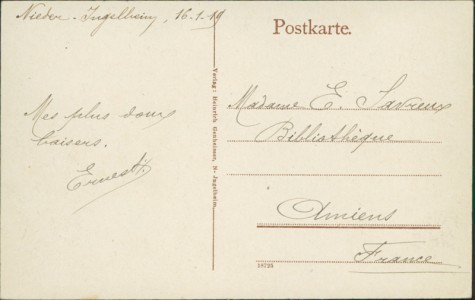 Nieder-Ingelheim, 16-1-19
Postkarte.
Mes plus doux
baisers.
Ernest.
Verlag: Heinrich Genheimer, N-Ingelheim.
Madame E. Savreux
Bibliothèque
Amiens
France
18735